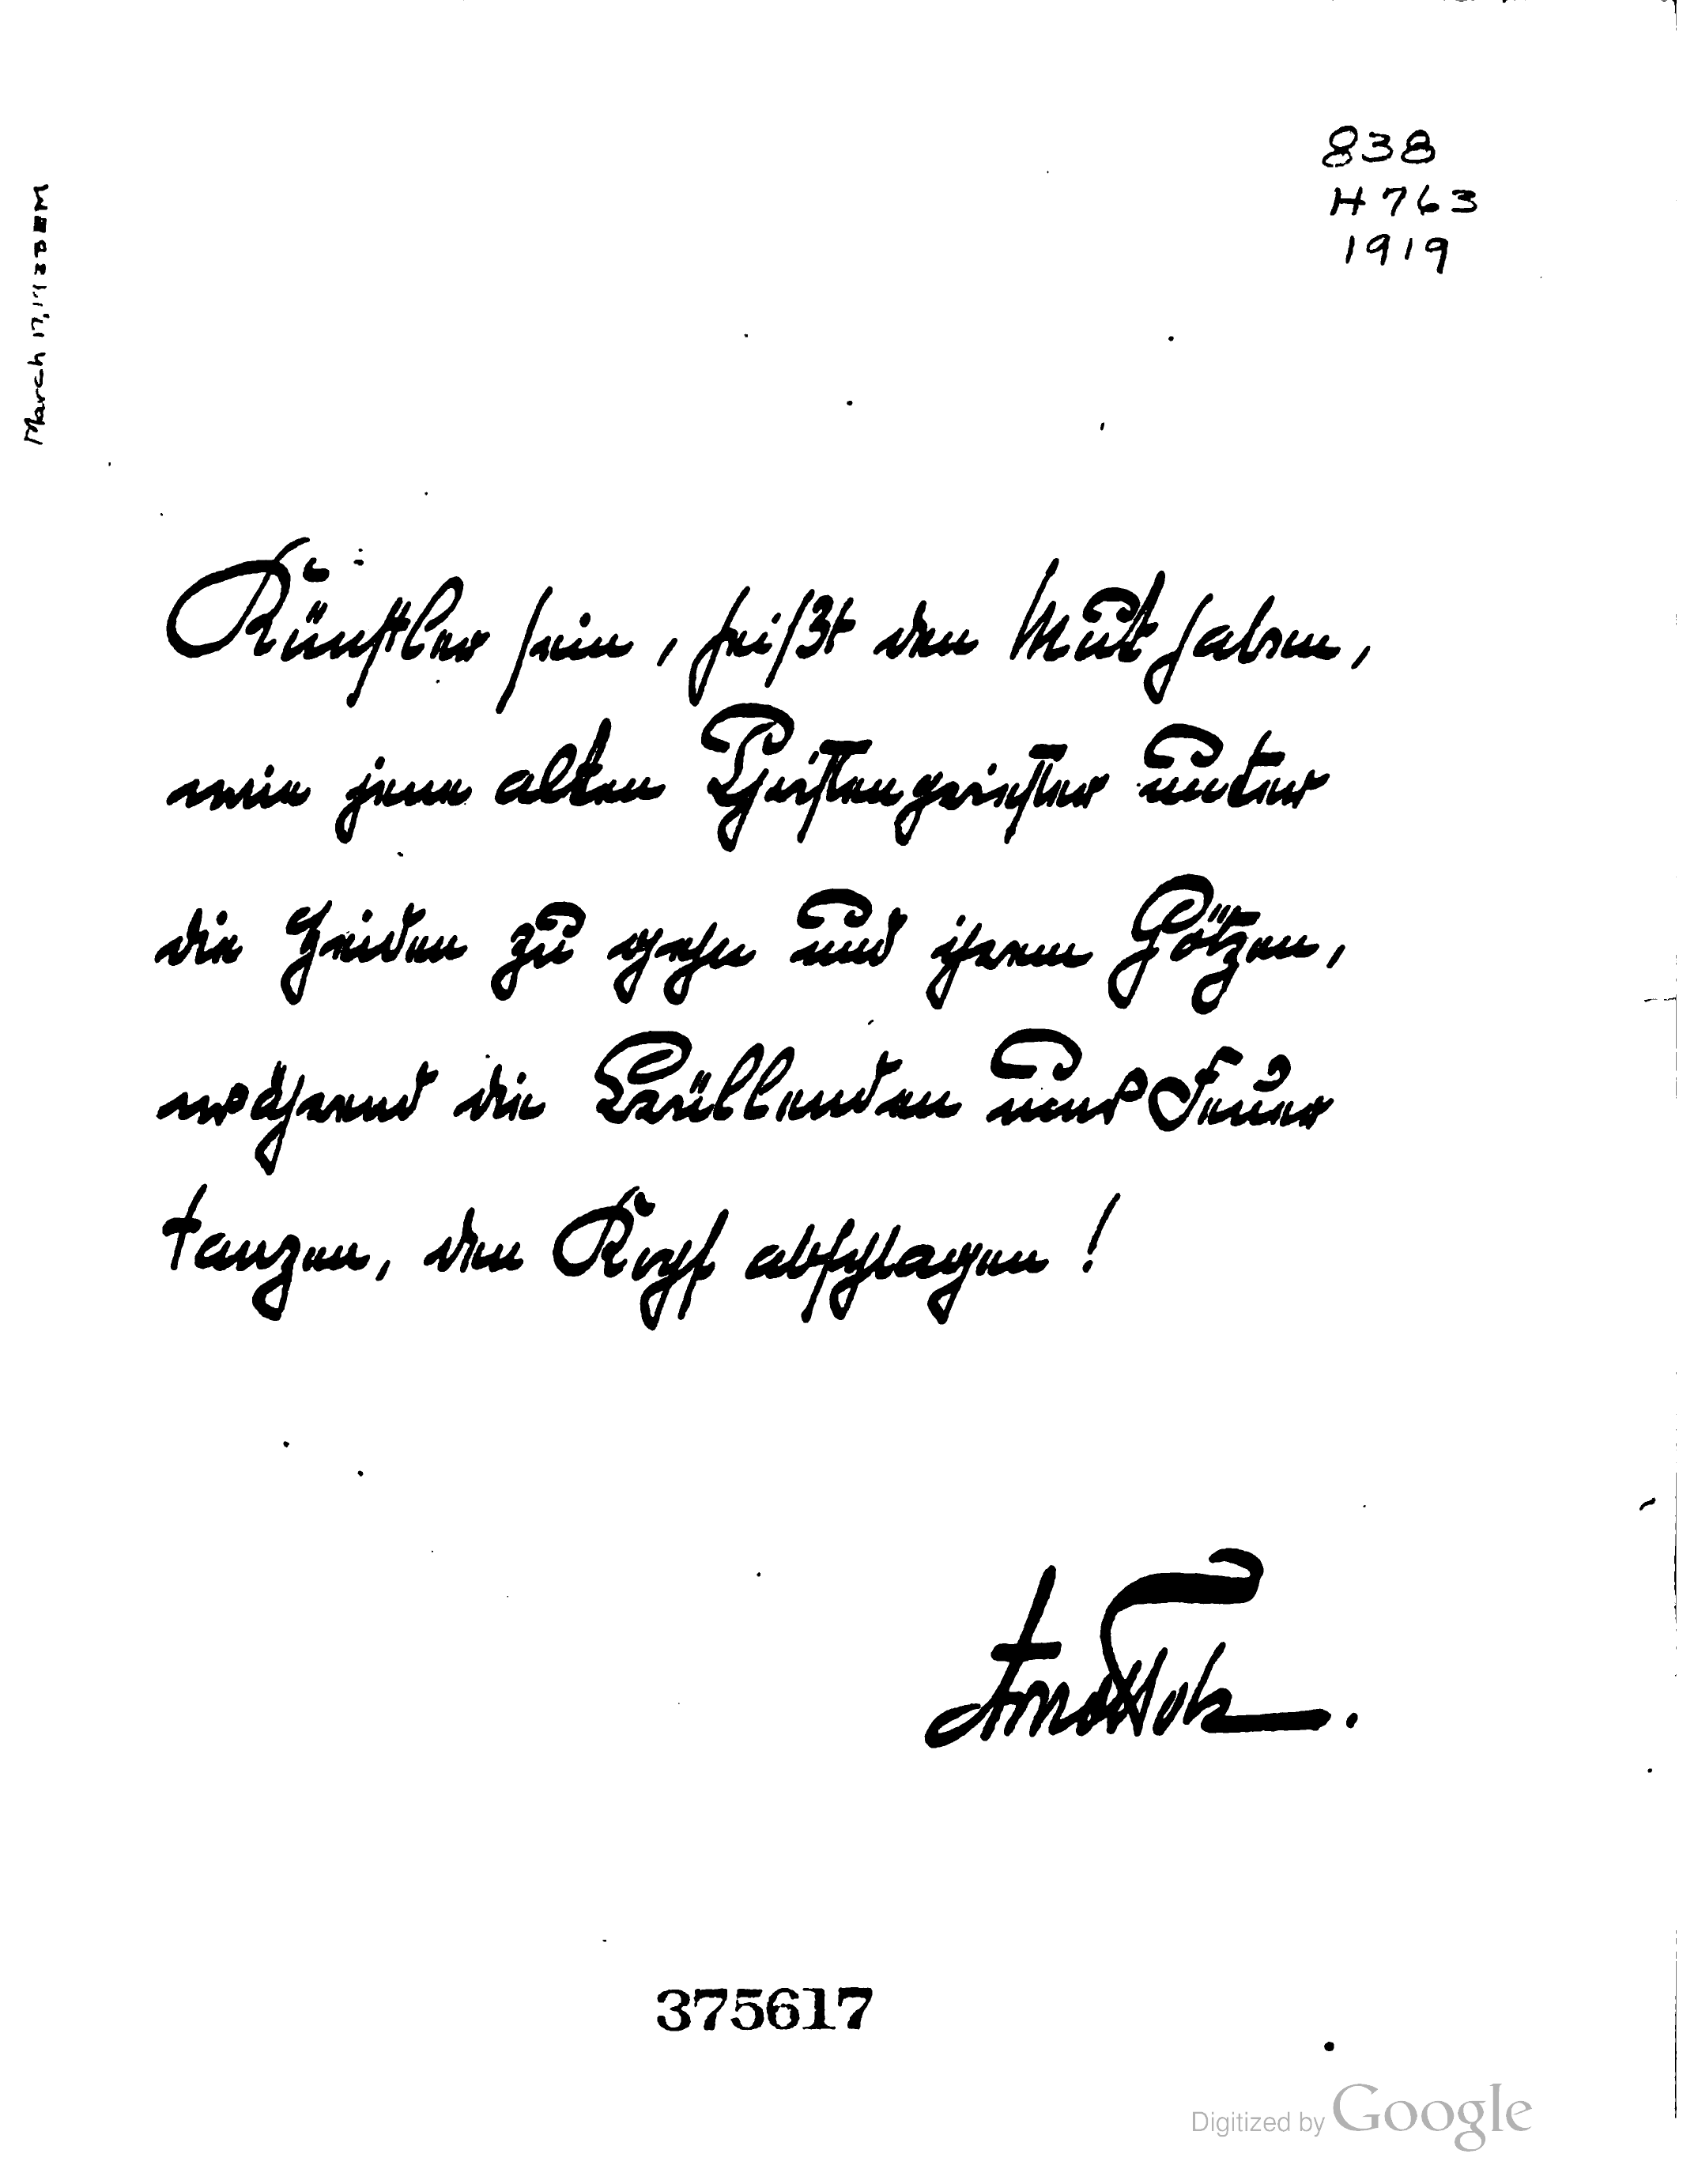 838
H763
1919
Künstler sein, heißt den Mut haben,
wie jene alten Christenpriester unter
die Heiden zu gehn und ihren Götzen,
während die Brüllenden ums Feuer
tanzen, den Kopf abschlagen!
Arno Holz.
375617
Digitized by Google